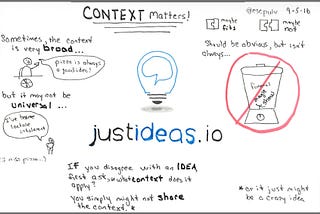 CONTEXT Matters!
@esepulv 9-5-16
maybe fits
maybe not
Sometimes, the context
is very broad...
pizza is always
a good idea!
but it may not be
universal...
I've become
lactose
intolerant
Should be obvious, but isn't
always...
justideas.io
IF you disagree with an IDEA,
first ask, in what context does it
apply?
You simply might not share
the context. *
* or it just might
be a crazy idea